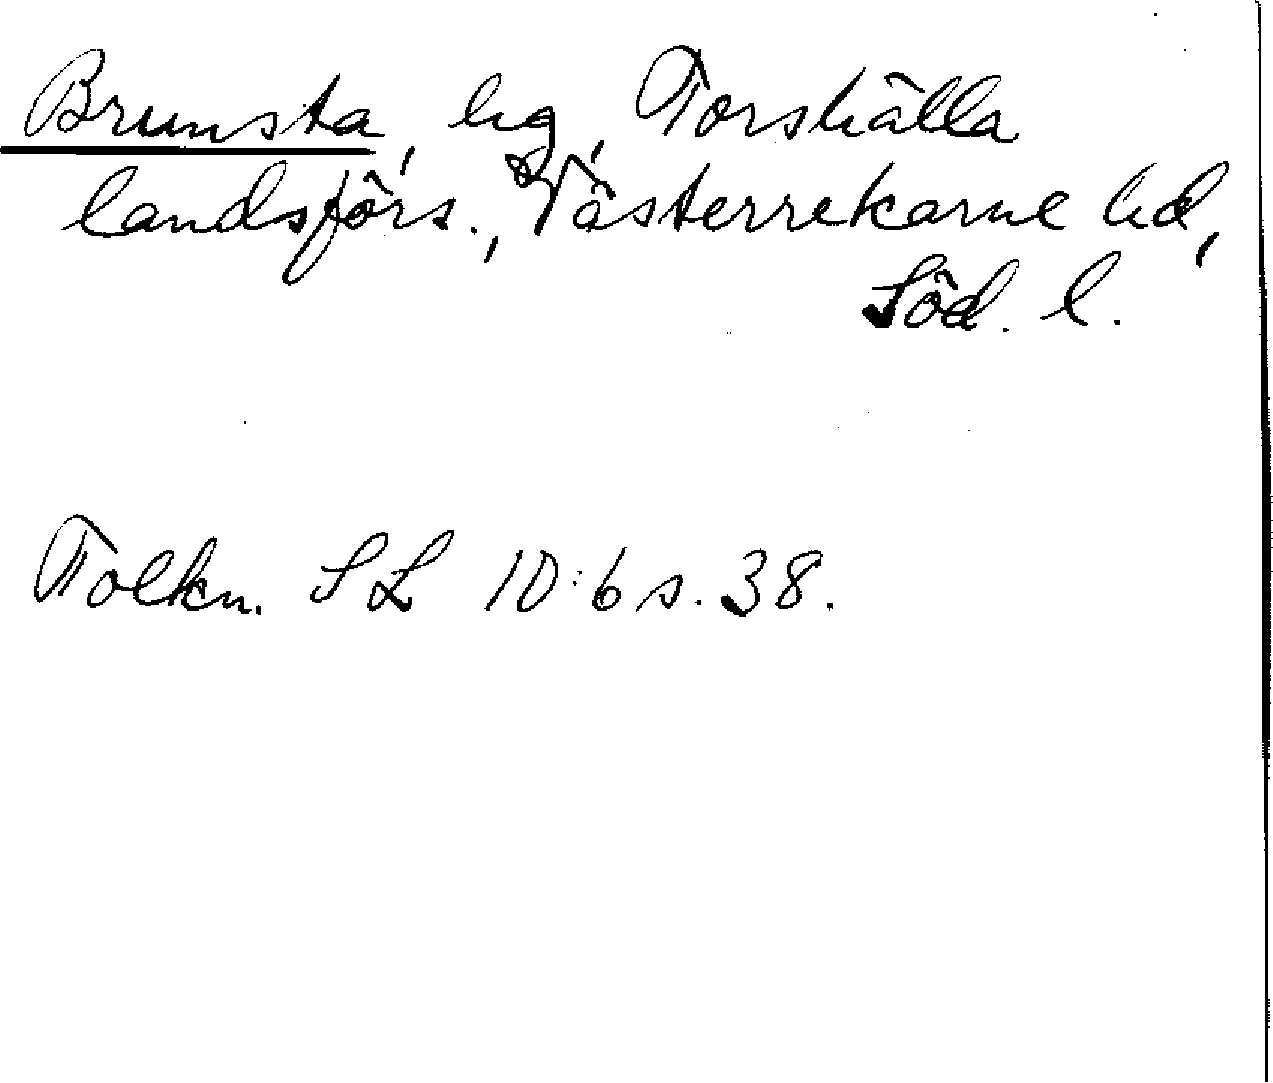 Brunsta, hg, Torshälla
landsförs., Västerrekarne hd,
Söd. l.
Tolkn. SL 10:6 s. 38.